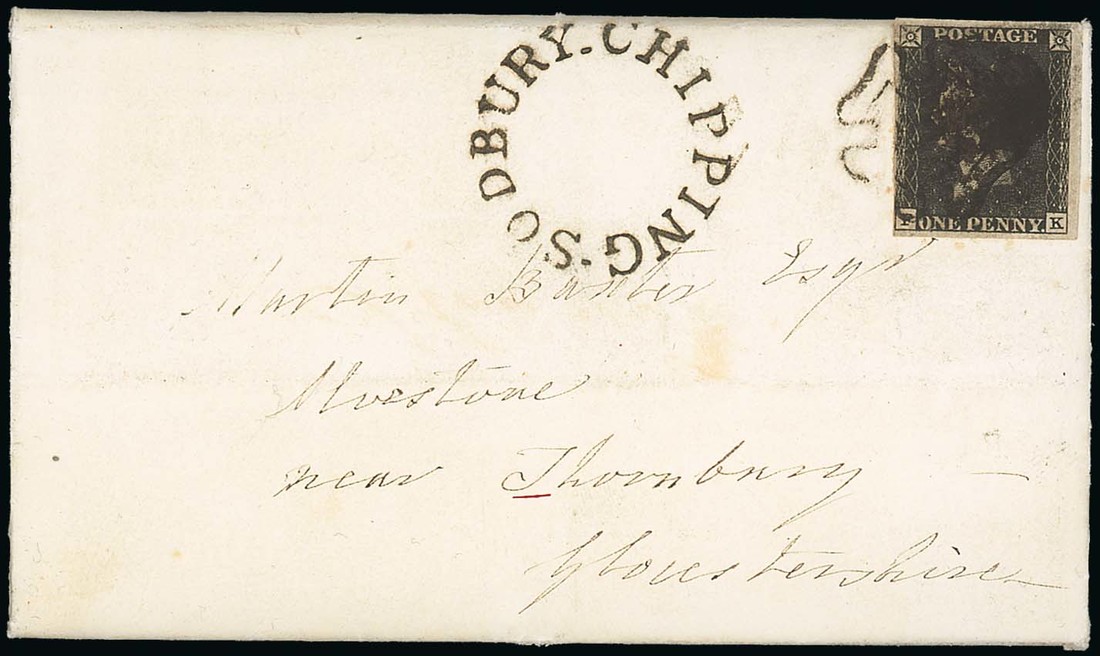 CHIPPING-SODBURY-
POSTAGE
ONE PENNY.
K
Martin Baxter Esqr
Alvestone
near Thornbury
Gloucestershire